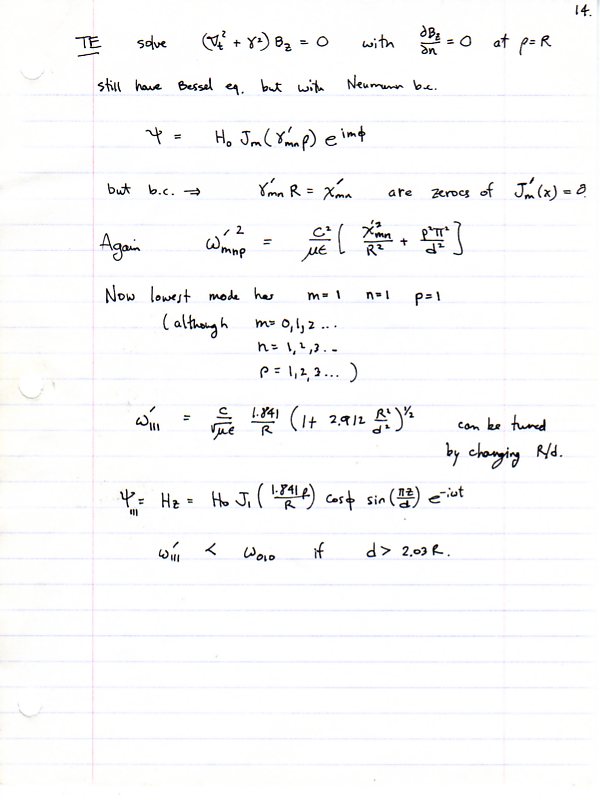 14.
TE solve (∇ₜ² + γ²) B_z = 0 with ∂B_z/∂n = 0 at ρ = R
still have Bessel eq. but with Neumann b.c.
Ψ = H₀ J_m(γ'_mn ρ) e^{imφ}
but b.c. ⇒ γ'_mn R = x'_mn are zeroes of J'_m(x) = 0.
Again ω'_mnp² = c²/με [ x'_mn²/R² + p²π²/d² ]
Now lowest mode has m=1 n=1 p=1
(although m= 0,1,2 ...
n= 1,2,3...
p = 1,2,3... )
ω'₁₁₁ = c/√με 1.841/R (1+ 2.912 R²/d²)^{1/2} can be tuned
by changing R/d.
Ψ₁₁₁ = H_z = H₀ J₁(1.841ρ/R) cosφ sin(πz/d) e^{-iωt}
ω'₁₁₁ < ω₀₁₀ if d > 2.03 R.